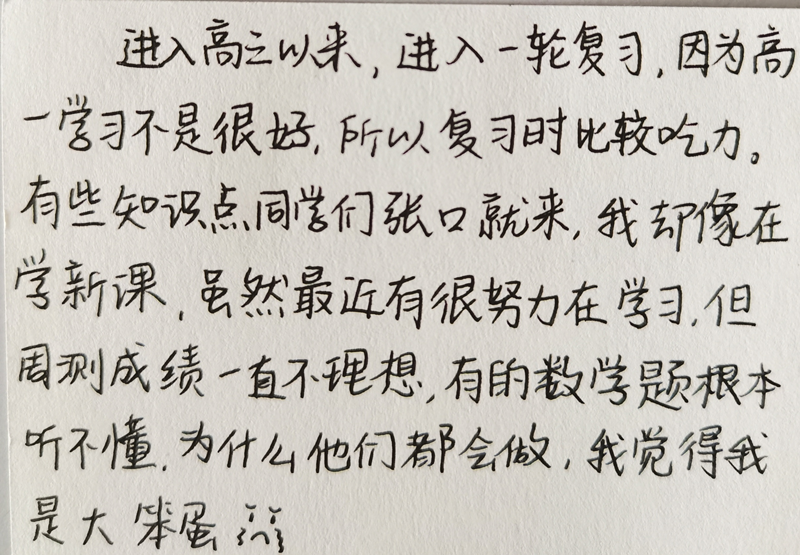 进入高三以来，进入一轮复习，因为高
一学习不是很好，所以复习时比较吃力。
有些知识点同学们张口就来，我却像在
学新课，虽然最近有很努力在学习，但
周测成绩一直不理想，有的数学题根本
听不懂，为什么他们都会做，我觉得我
是大笨蛋